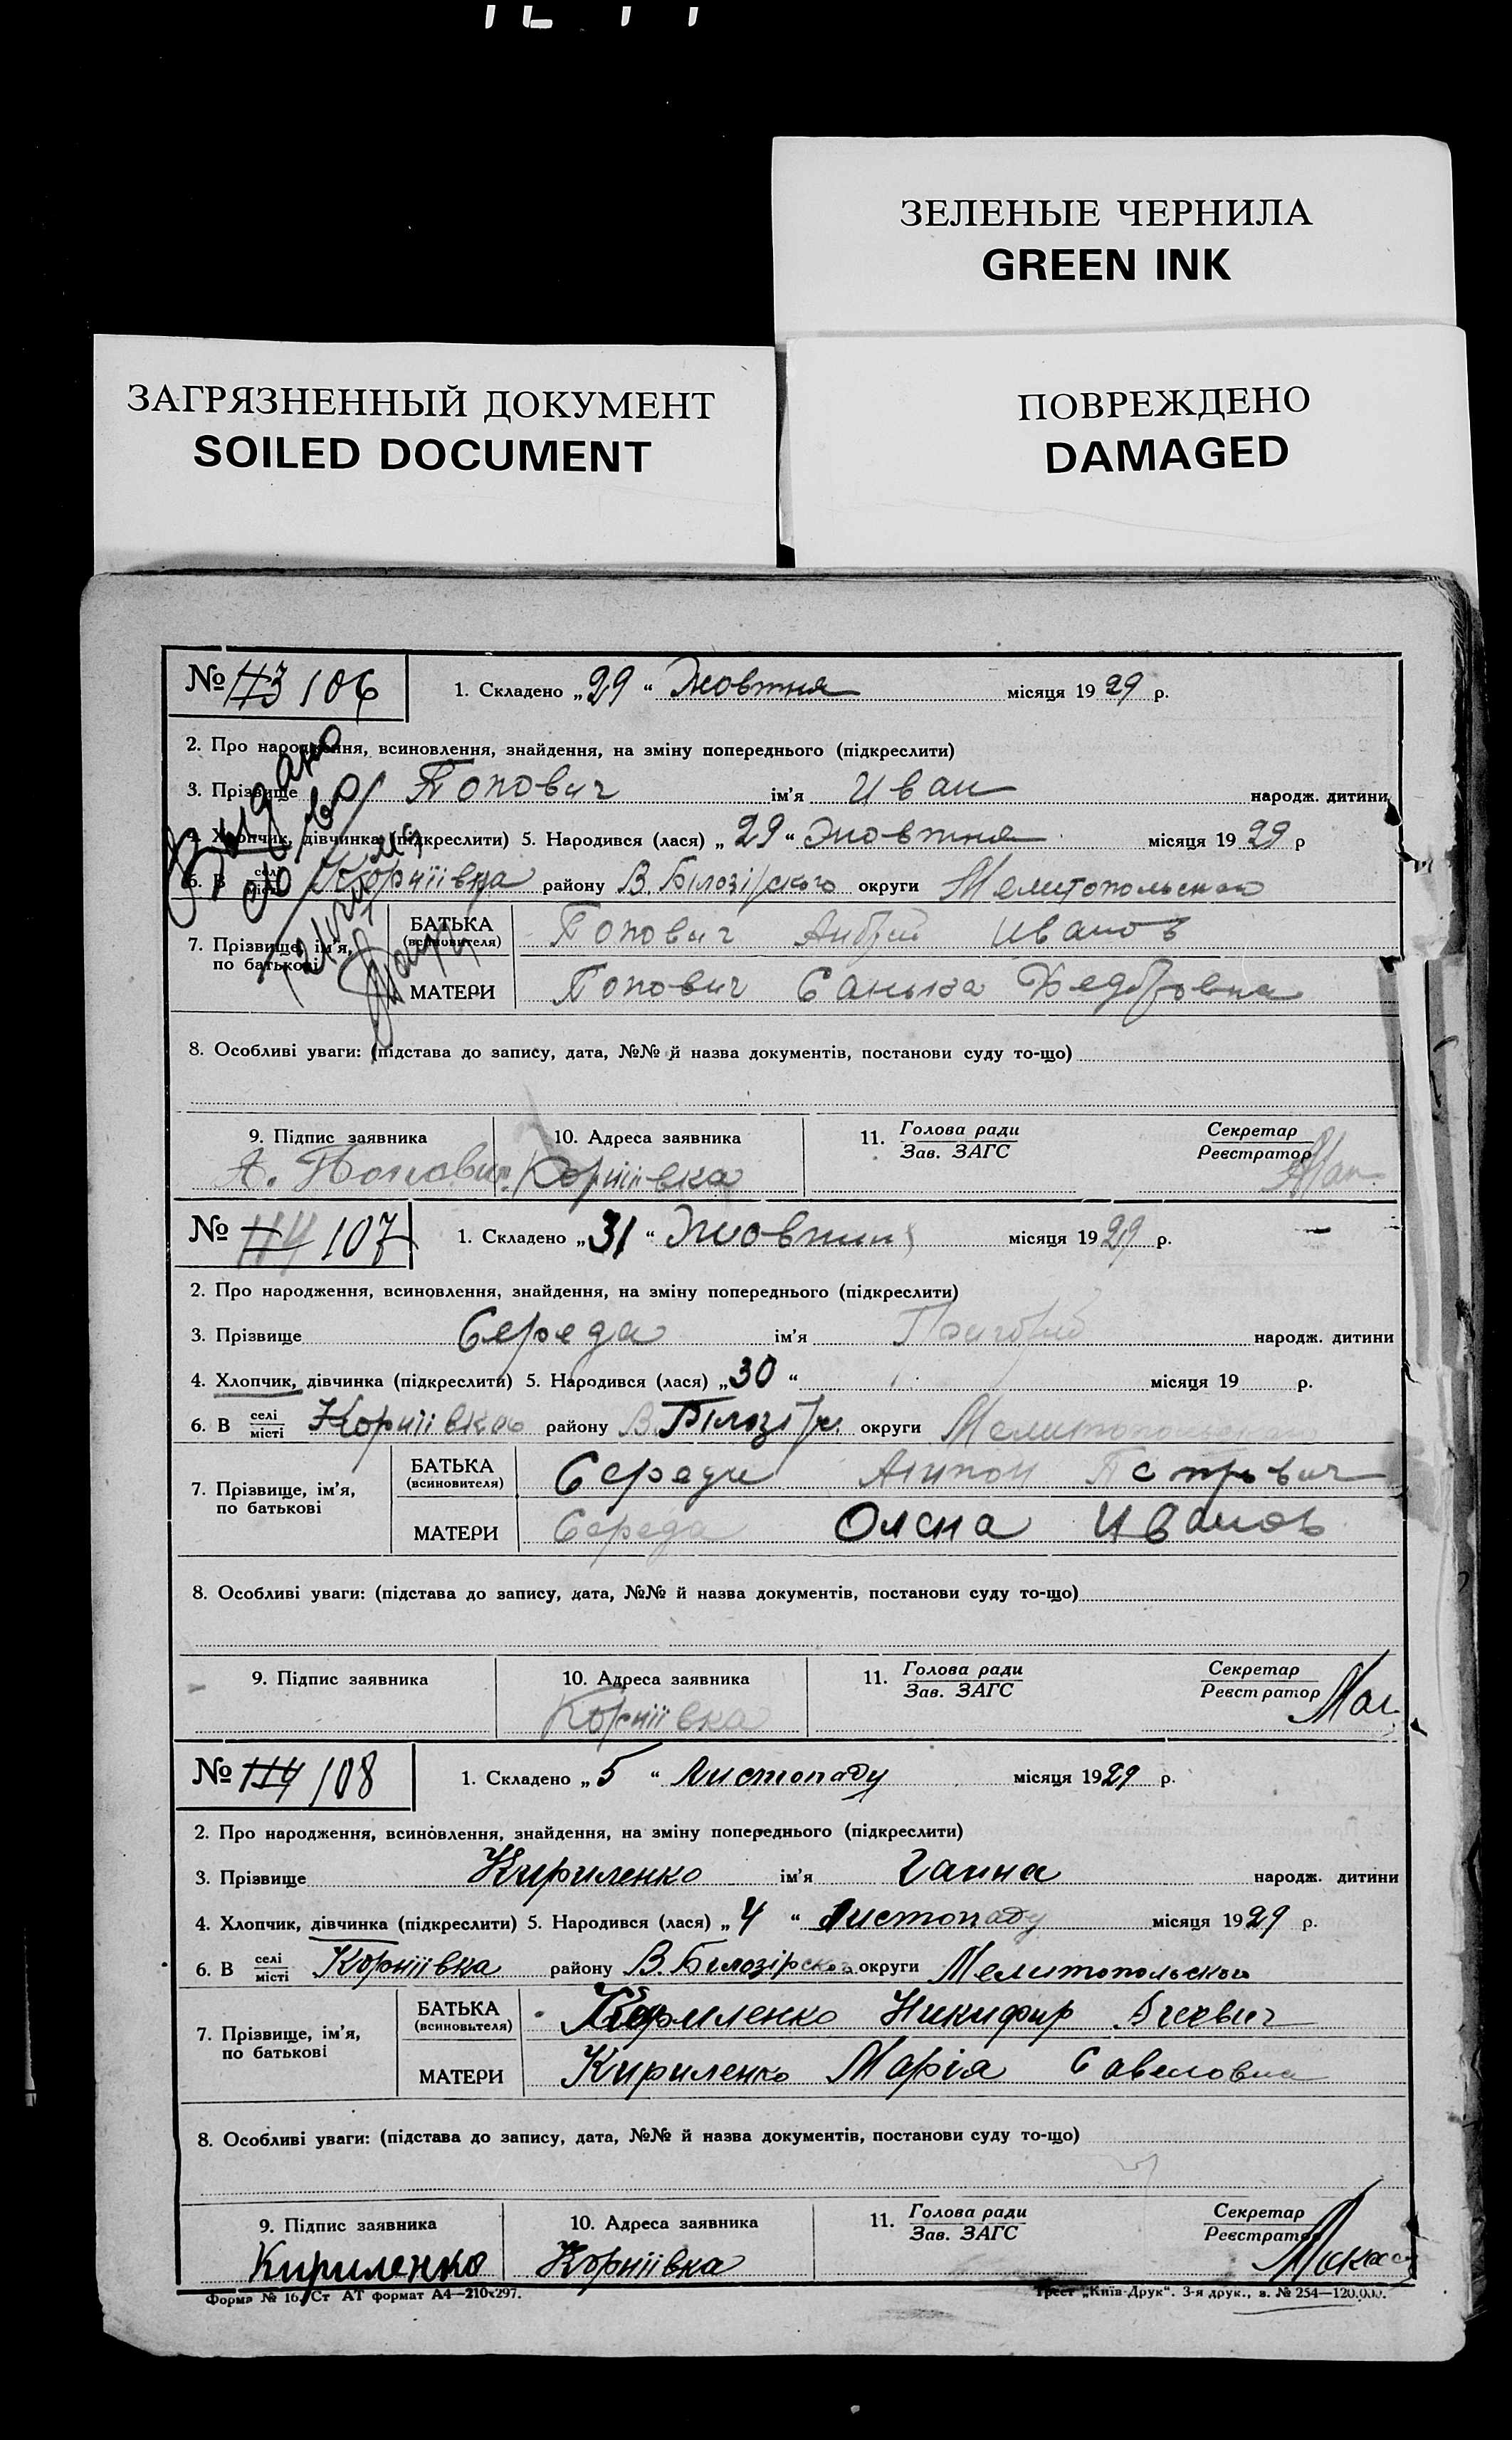 ЗЕЛЕНЫЕ ЧЕРНИЛА
GREEN INK
ЗАГРЯЗНЕННЫЙ ДОКУМЕНТ
SOILED DOCUMENT
ПОВРЕЖДЕНО
DAMAGED
№ 113 106
1. Складено „29“ Жовтня місяця 1929 р.
2. Про народження, всиновлення, знайдення, на зміну попереднього (підкреслити)
3. Прізвище Попович ім'я Иван народж. дитини
4. Хлопчик, дівчинка (підкреслити) 5. Народився (лася) „29“ Жовтня місяця 1929 р
6. В селі місті Корніївка району В. Білозірського округи Мелитопольской
7. Прізвище, ім'я, по батькові
БАТЬКА (всиновителя) Попович Андрій Иванов
МАТЕРИ Попович Санька Федоровна
Видано
8. Особливі уваги: (підстава до запису, дата, №№ й назва документів, постанови суду то-що)
9. Підпис заявника
10. Адреса заявника
11. Голова ради
Зав. ЗАГС
Секретар
Реєстратор
А. Попович Корніївка
№ 114 107
1. Складено „31“ Жовтня місяця 1929 р.
2. Про народження, всиновлення, знайдення, на зміну попереднього (підкреслити)
3. Прізвище Середа ім'я Григорій народж. дитини
4. Хлопчик, дівчинка (підкреслити) 5. Народився (лася) „30“ місяця 19 р.
6. В селі місті Корніївкао району В. Білозір. округи Мелитопольской
7. Прізвище, ім'я, по батькові
БАТЬКА (всиновителя) Середа Петрович
МАТЕРИ Середа Олена Иванов
8. Особливі уваги: (підстава до запису, дата, №№ й назва документів, постанови суду то-що)
9. Підпис заявника
10. Адреса заявника
11. Голова ради
Зав. ЗАГС
Секретар
Реєстратор
Корніївка
№ 114 108
1. Складено „5“ Листопаду місяця 1929 р.
2. Про народження, всиновлення, знайдення, на зміну попереднього (підкреслити)
3. Прізвище Кириленко ім'я Ганна народж. дитини
4. Хлопчик, дівчинка (підкреслити) 5. Народився (лася) „4“ Листопаду місяця 1929 р.
6. В селі місті Корніївка району В. Білозірского округи Мелитопольского
7. Прізвище, ім'я, по батькові
БАТЬКА (всиновителя) Кириленко Никифир
МАТЕРИ Кириленко Марія Савеловна
8. Особливі уваги: (підстава до запису, дата, №№ й назва документів, постанови суду то-що)
9. Підпис заявника
10. Адреса заявника
11. Голова ради
Зав. ЗАГС
Секретар
Реєстратор
Кириленко Корніївка
Форма № 16. Ст АТ формат А4—210х297.
Трест „Київ-Друк“. 3-я друк., з. № 254—120.000.